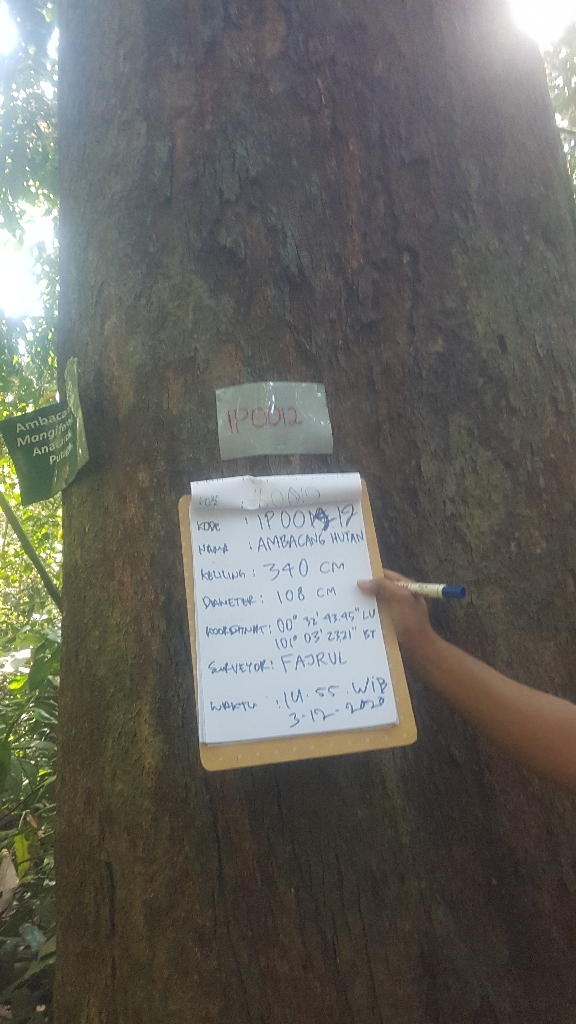 Ambaca
Mangife
Ana
Pu
IP0012
KODE : IP00 12
NAMA : AMBACANG HUTAN
KELILING : 340 CM
DIAMETER : 108 CM
KOORDINAT : 00° 32' 43.45" LU
101° 03' 23.21" BT
SURVEYOR : FAJRUL
WAKTU : 14.55 WIB
3-12-2020